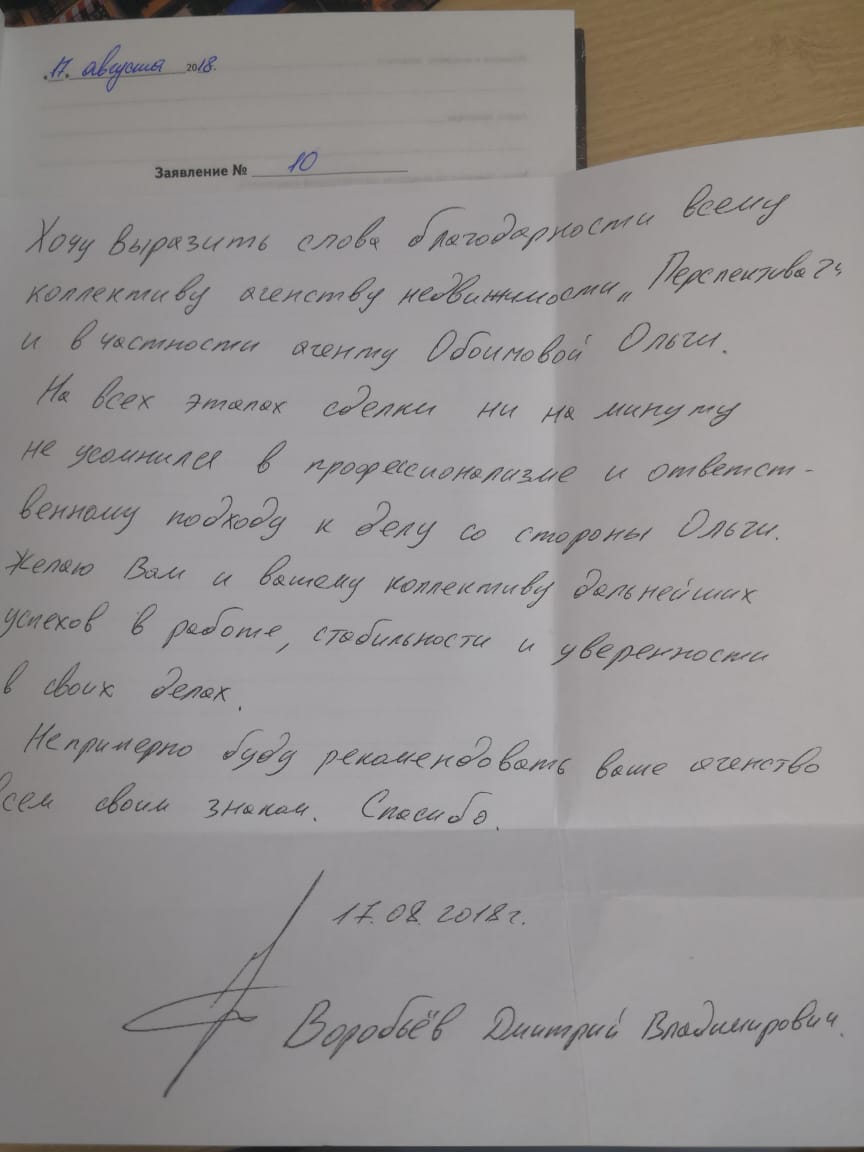 „17" августа 2018.
Заявление № 10
Хочу выразить слова благодарности всему
коллективу агенству недвижимости „Перспектива 24"
и в частности агенту Обоимовой Ольги.
На всех этапах сделки ни на минуту
не усомнился в профессионализме и ответст-
венному подходу к делу со стороны Ольги.
Желаю Вам и вашему коллективу дальнейших
успехов в работе, стабильности и уверенности
в своих делах.
Непримерно буду рекомендовать ваше агенство
всем своим знаком. Спасибо.
17.08.2018г.
Воробьёв Дмитрий Владимирович.